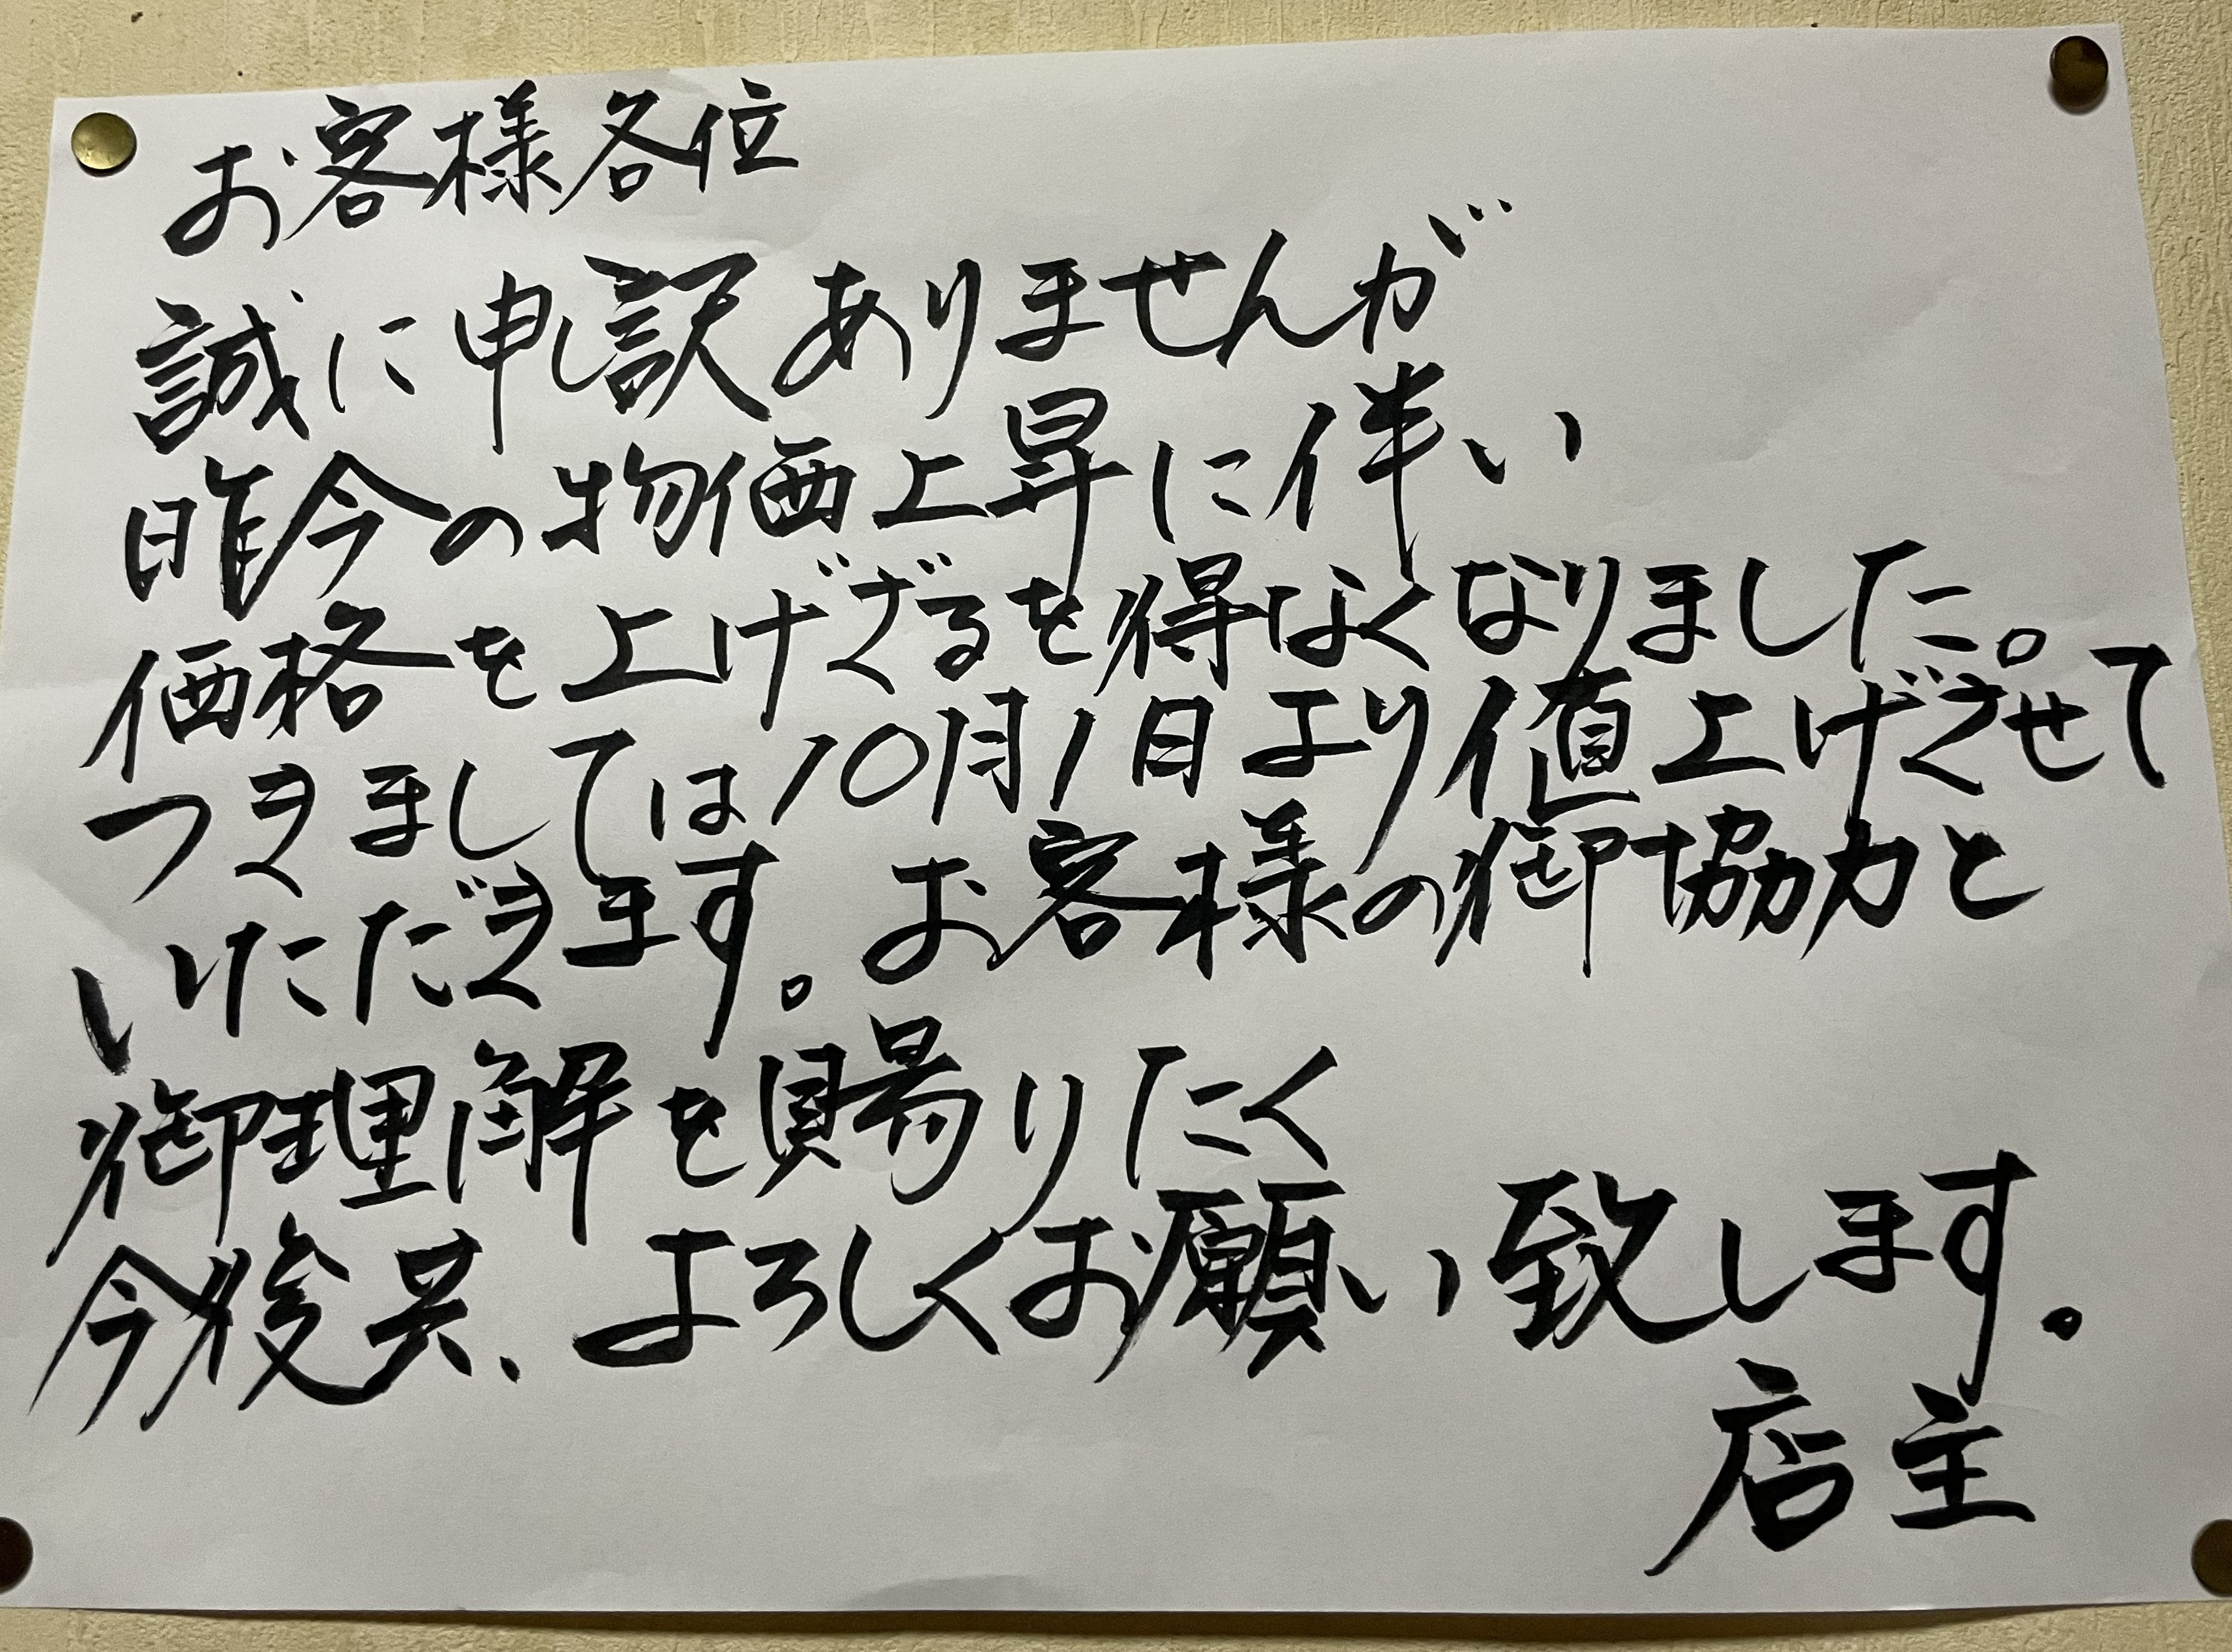 お客様各位
誠に申し訳ありませんが
昨今の物価上昇に伴い
価格を上げざるを得なくなりました。
つきましては10月1日より値上げさせて
いただきます。お客様の御協力と
御理解を賜りたく
今後共、よろしくお願い致します。
店主